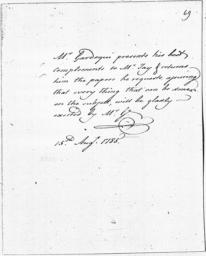 69
Mr. Gardoqui presents his best
compliments to Mr. Jay & returns
him the papers he requests assuring
that every thing that can be done
on the subject, will be gladly
executed by Mr. G.
15th Augt. 1785.